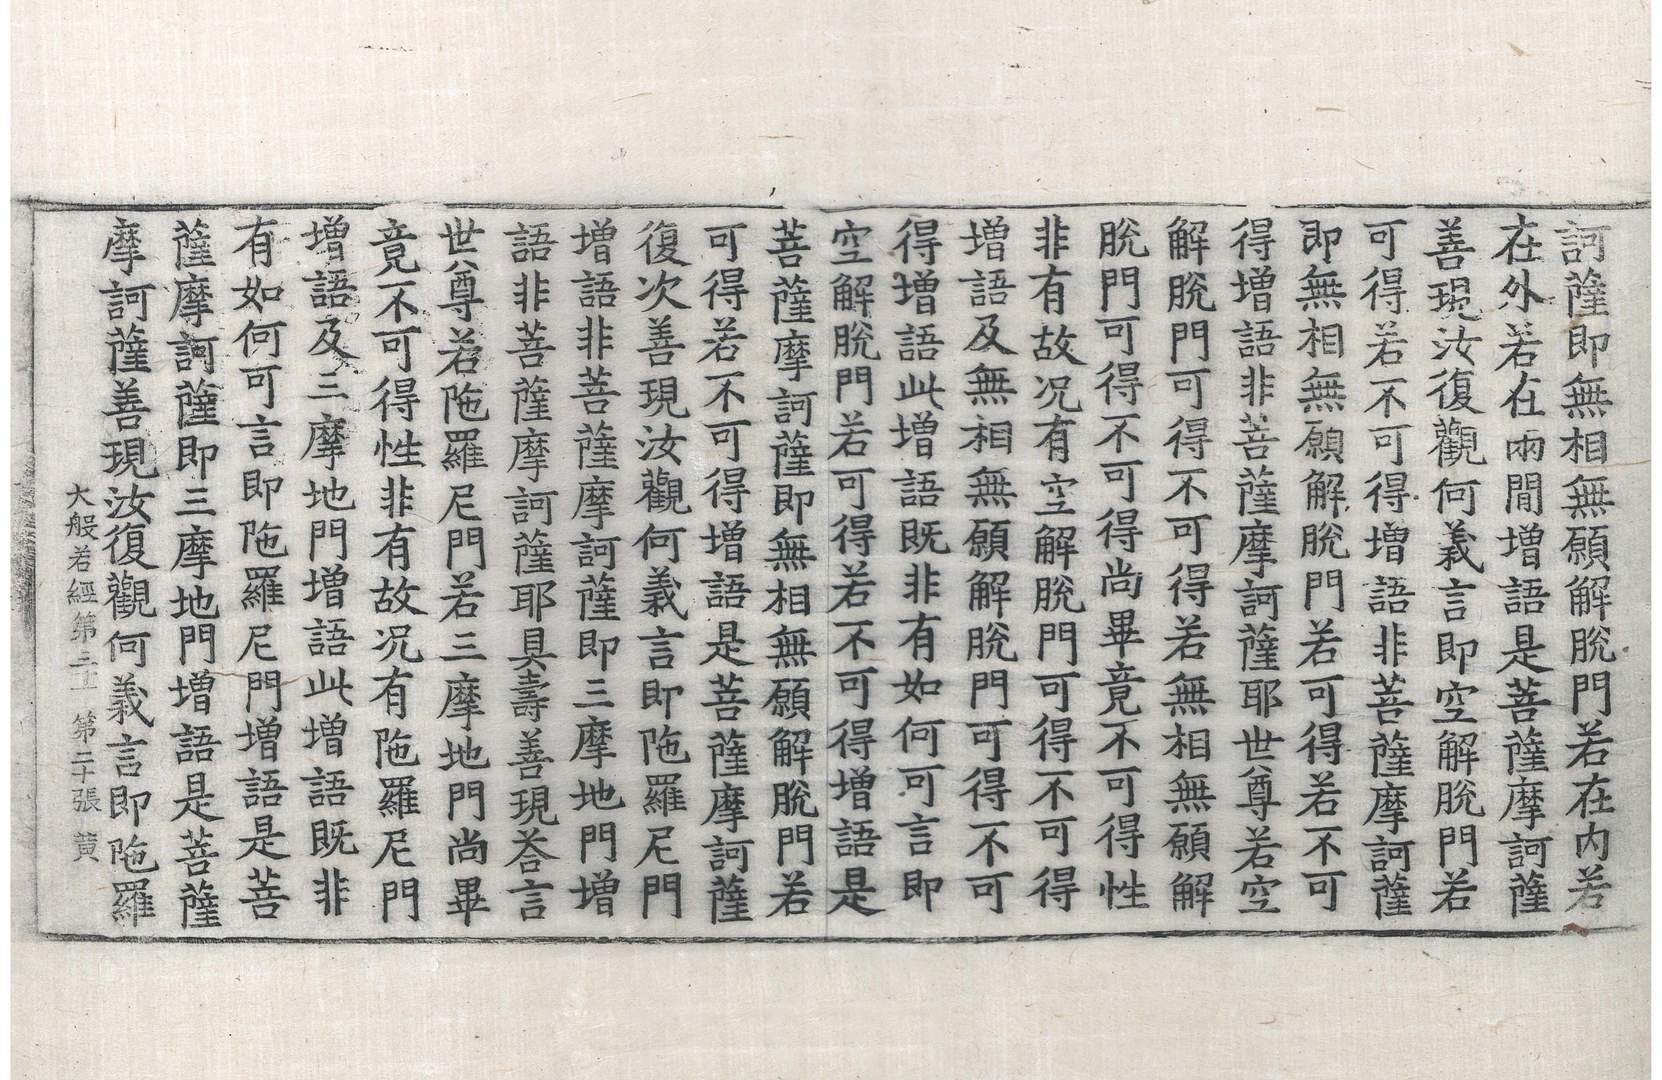 訶薩即無相無願解脫門若在内若
在外若在兩間增語是菩薩摩訶薩
善現汝復觀何義言即空解脫門若
可得若不可得增語非菩薩摩訶薩
即無相無願解脫門若可得若不可
得增語非菩薩摩訶薩耶世尊若空
解脫門可得不可得若無相無願解
脫門可得不可得尚畢竟不可得性
非有故况有空解脫門可得不可得
增語及無相無願解脫門可得不可
得增語此增語既非有如何可言即
空解脫門若可得若不可得增語是
菩薩摩訶薩即無相無願解脫門若
可得若不可得增語是菩薩摩訶薩
復次善現汝觀何義言即陁羅尼門
增語非菩薩摩訶薩即三摩地門增
語非菩薩摩訶薩耶具壽善現荅言
世尊若陁羅尼門若三摩地門尚畢
竟不可得性非有故况有陁羅尼門
增語及三摩地門增語此增語既非
有如何可言即陁羅尼門增語是菩
薩摩訶薩即三摩地門增語是菩薩
摩訶薩善現汝復觀何義言即陁羅
大般若經第三十一 第二十張 黄